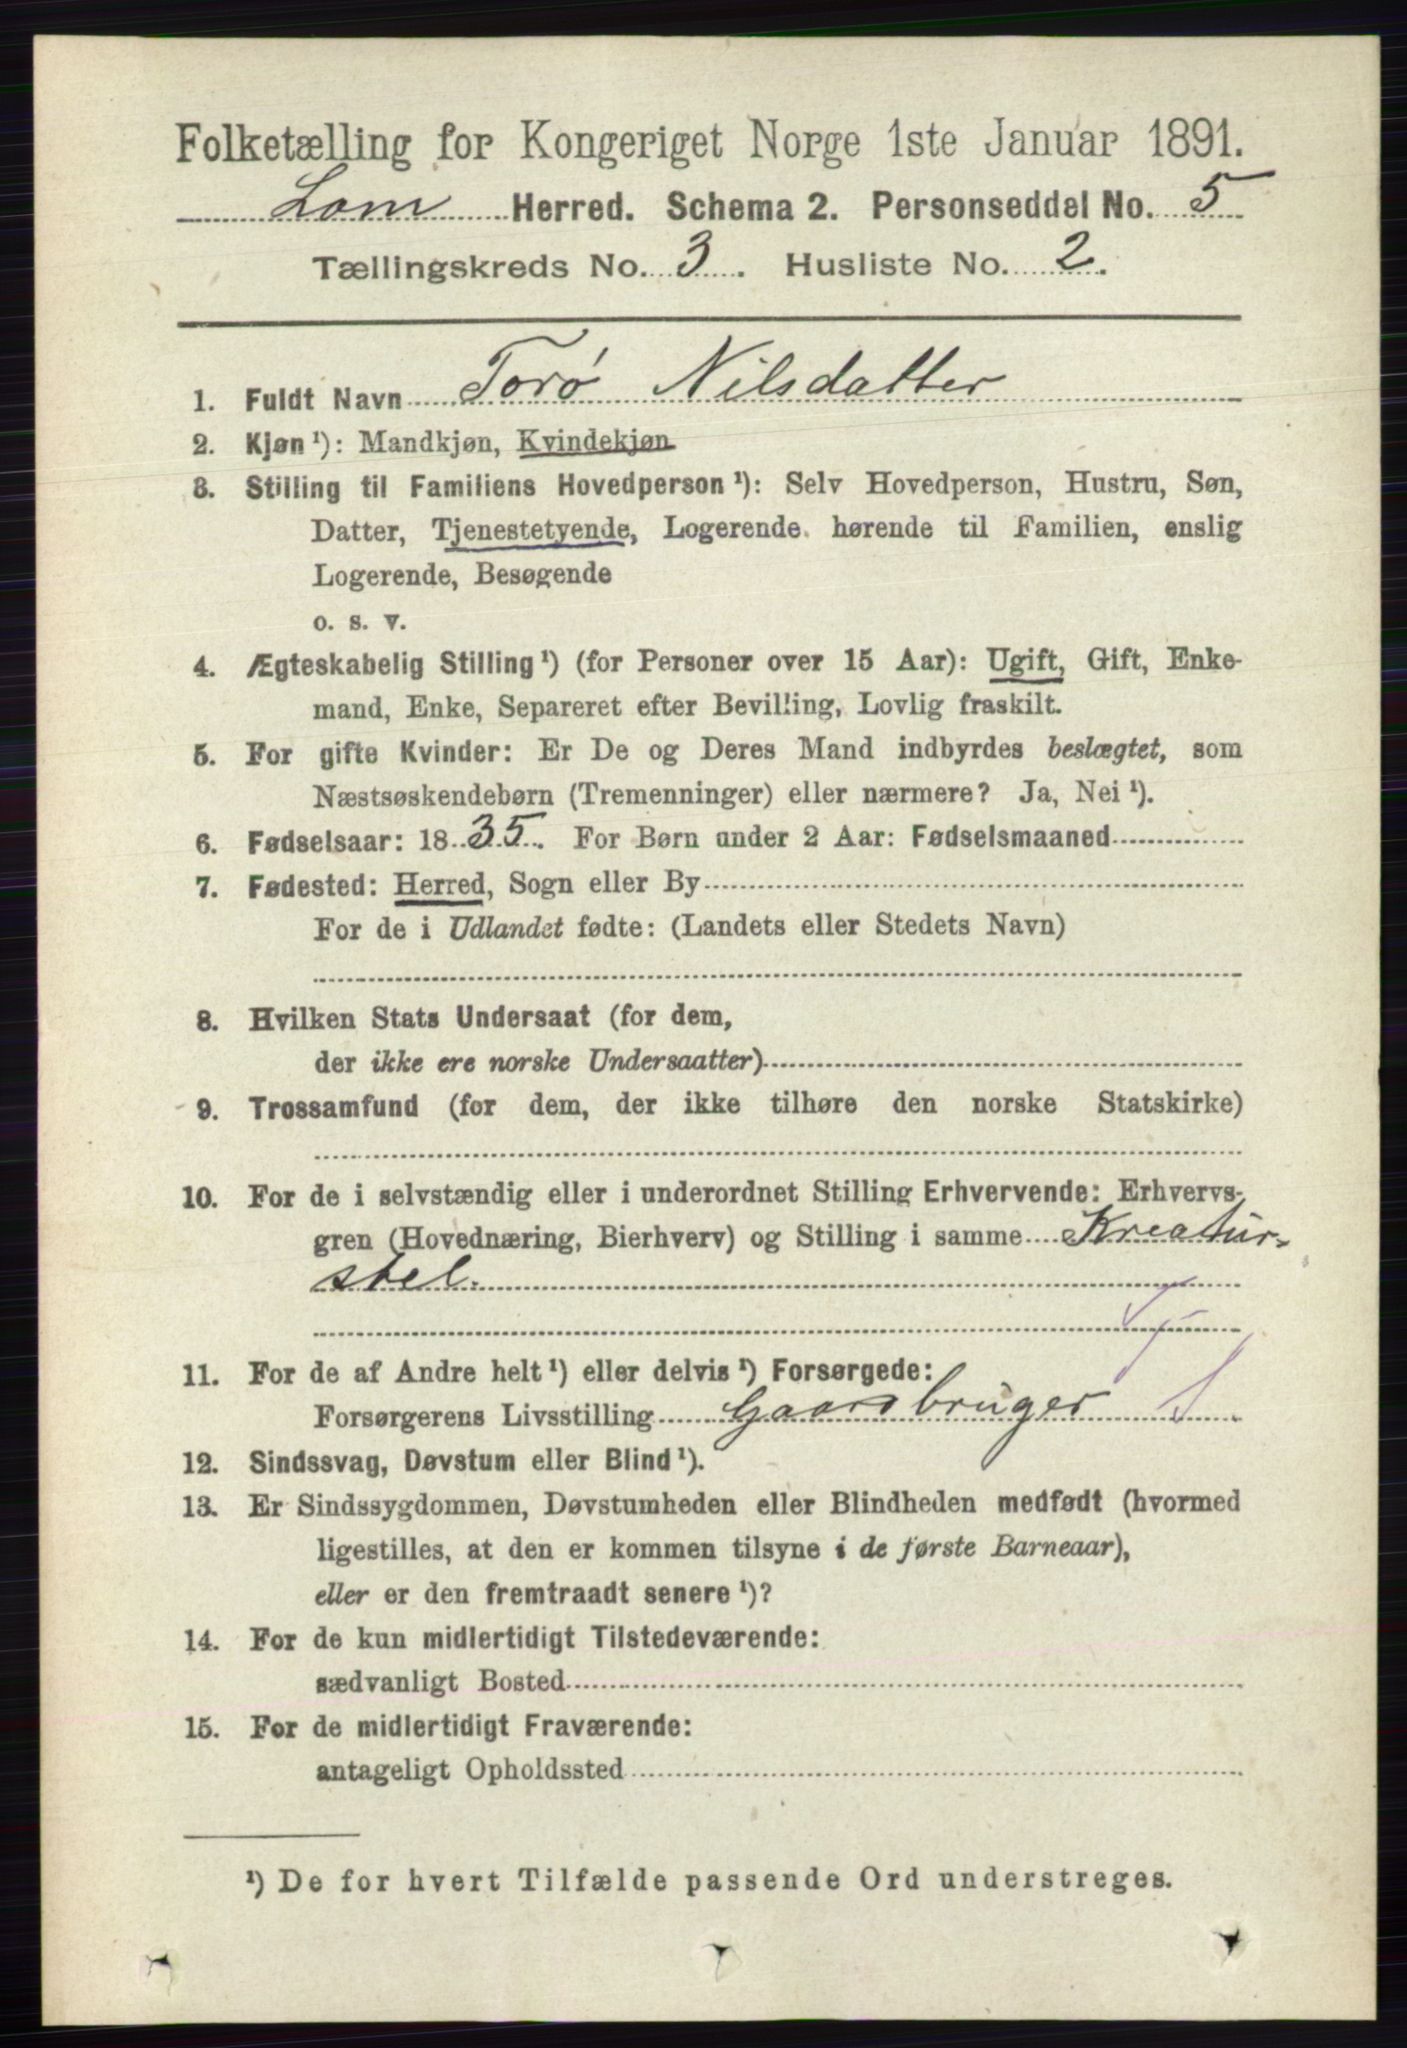 Folketælling for Kongeriget Norge 1ste Januar 1891.
Lom Herred. Schema 2. Personseddel No. 5
Tællingskreds No. 3. Husliste No. 2.
1. Fuldt Navn Torø Nilsdatter
2. Kjøn¹): Mandkjøn, Kvindekjøn
3. Stilling til Familiens Hovedperson¹): Selv Hovedperson, Hustru, Søn,
Datter, Tjenestetyende, Logerende hørende til Familien, enslig
Logerende, Besøgende
o. s. v.
4. Ægteskabelig Stilling¹) (for Personer over 15 Aar): Ugift, Gift, Enke-
mand, Enke, Separeret efter Bevilling, Lovlig fraskilt.
5. For gifte Kvinder: Er De og Deres Mand indbyrdes beslægtet, som
Næstsøskendebørn (Tremenninger) eller nærmere? Ja, Nei¹).
6. Fødselsaar: 1835. For Børn under 2 Aar: Fødselsmaaned
7. Fødested: Herred, Sogn eller By
For de i Udlandet fødte: (Landets eller Stedets Navn)
8. Hvilken Stats Undersaat (for dem,
der ikke ere norske Undersaatter)
9. Trossamfund (for dem, der ikke tilhøre den norske Statskirke)
10. For de i selvstændig eller i underordnet Stilling Erhvervende: Erhvervs-
gren (Hovednæring, Bierhverv) og Stilling i samme Kreatur-
stel.
11. For de af Andre helt¹) eller delvis¹) Forsørgede:
Forsørgerens Livsstilling Gaardbruger
12. Sindssvag, Døvstum eller Blind¹).
13. Er Sindssygdommen, Døvstumheden eller Blindheden medfødt (hvormed
ligestilles, at den er kommen tilsyne i de første Barneaar),
eller er den fremtraadt senere¹)?
14. For de kun midlertidigt Tilstedeværende:
sædvanligt Bosted
15. For de midlertidigt Fraværende:
antageligt Opholdssted
¹) De for hvert Tilfælde passende Ord understreges.